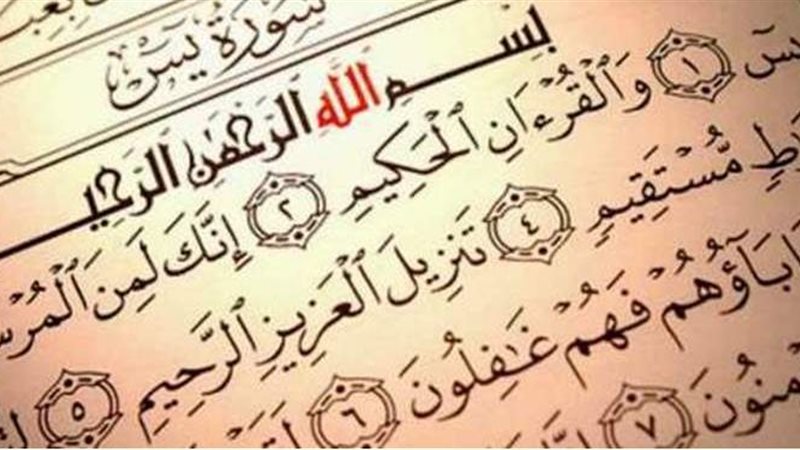 سُورَةُ يسٓ
بِسْمِ ٱللَّهِ ٱلرَّحْمَٰنِ ٱلرَّحِي
يسٓ ١ وَٱلْقُرْءَانِ ٱلْحَكِيمِ ٢ إِنَّكَ لَمِنَ ٱلْمُرْسَ
مُّسْتَقِيمٍ ٤ تَنزِيلَ ٱلْعَزِيزِ ٱلرَّحِيمِ ٥
ءَابَآؤُهُمْ فَهُمْ غَٰفِلُونَ ٦
٧